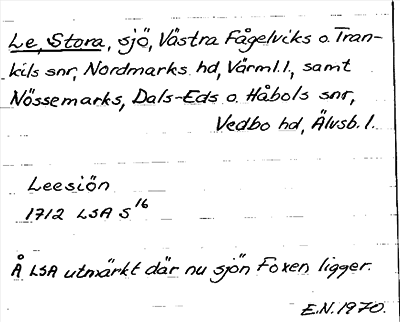 Le, Stora, sjö, Västra Fågelviks o. Tran-
kils snr, Nordmarks hd, Värml. l., samt
Nössemarks, Dals-Eds o. Håbols snr,
Vedbo hd, Älvsb. l.
Leesiön
1712 LSA S 16
Å LSA utmärkt där nu sjön Foxen ligger.
E.N. 1970.